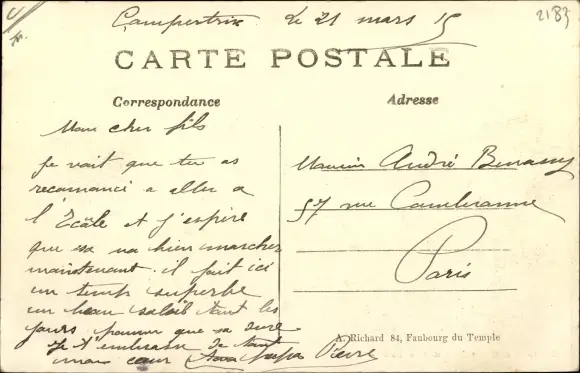 Campertrix le 21 mars 15
2183
CARTE POSTALE
Correspondance
Adresse
Mon cher fils
Je vait que tu as
recomancé a aller a
l'Ecôle et j'espère
que sa va bien marcher
maintenant. il fait ici
un temps superbe
un beau soleil tout les
jours pourvu que sa dure
Je t'embrasse de tout
mon cœur papa Pierre
Monsieur André Benassy
57 rue Cambronne
Paris
A. Richard 84, Faubourg du Temple